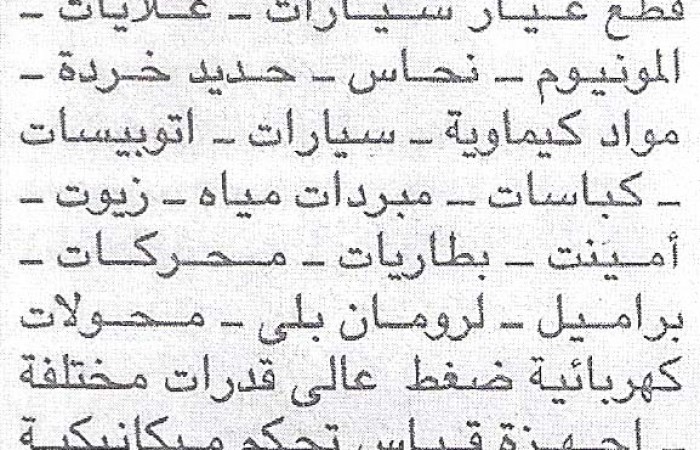 قطع غيار سيارات ـ غلايات ـ
المونيوم ـ نحاس ـ حديد خردة ـ
مواد كيماوية ـ سيارات ـ اتوبيسات
ـ كباسات ـ مبردات مياه ـ زيوت ـ
أمينت ـ بطاريات ـ محركات ـ
براميل ـ لرومان بلى ـ محولات
كهربائية ضغط عالى قدرات مختلفة
ـ اجهزة قياس تحكم ميكانيكية